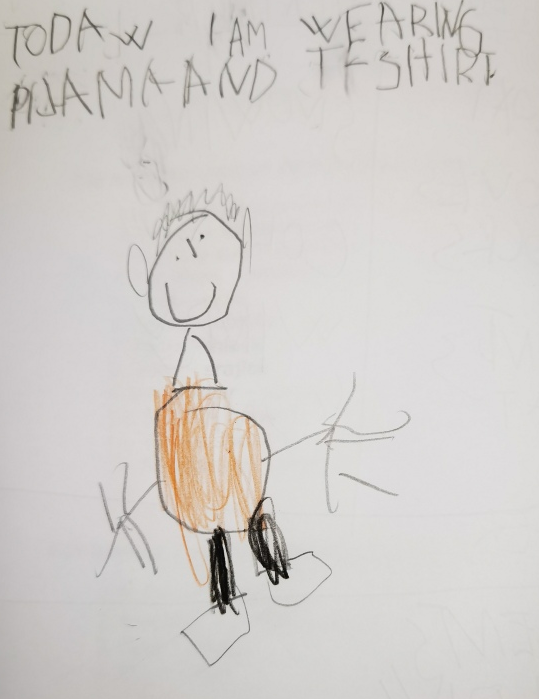 TODAW I AM WEARING
PIJAMA AND TFSHIRT